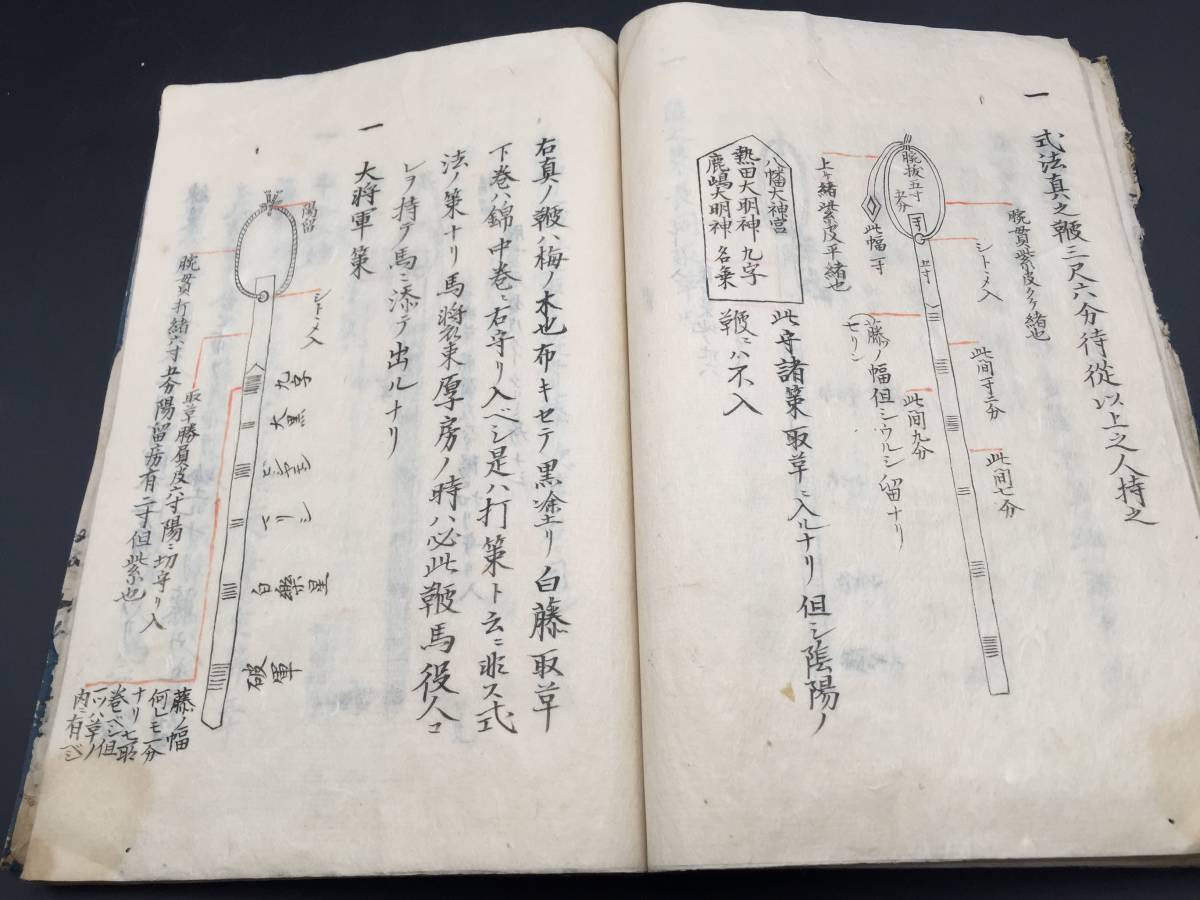 一
式法真之鞭三尺六分侍從以上之人持之
腕貫紫皮クケ緒也
シトヽメ入
此間寸三分
此間七分
腕抜五寸
五分
此幅一寸
上ケ緒紫皮平緒也
藤ノ幅但シウルシ留ナリ
七リン
此間九分
八幡大神宮
熱田大明神 九字
鹿嶋大明神 名乗
此守諸策取草ニ入ルナリ但シ陰陽ノ
鞭ニハ不入
右真ノ鞭ハ梅ノ木也布キセテ黒塗リ白藤取草
下巻ハ錦中巻ニ右守リ入ベシ是ハ打策ト云ニ非ス式
法ノ策ナリ馬將衣束厚房ノ時ハ必此鞭馬役人コ
レヲ持テ馬ニ添テ出ルナリ
一
大将軍策
陽留
シトヽメ入
腕貫打緒六寸五分陽留房有二寸但紫也
取草勝負皮六寸陽ニ切守リ入
九字
大黒
破軍
藤ノ幅
何レモ一分
ナリ七所
巻ベシ但
一ツハ草ノ
内ニ有ベシ